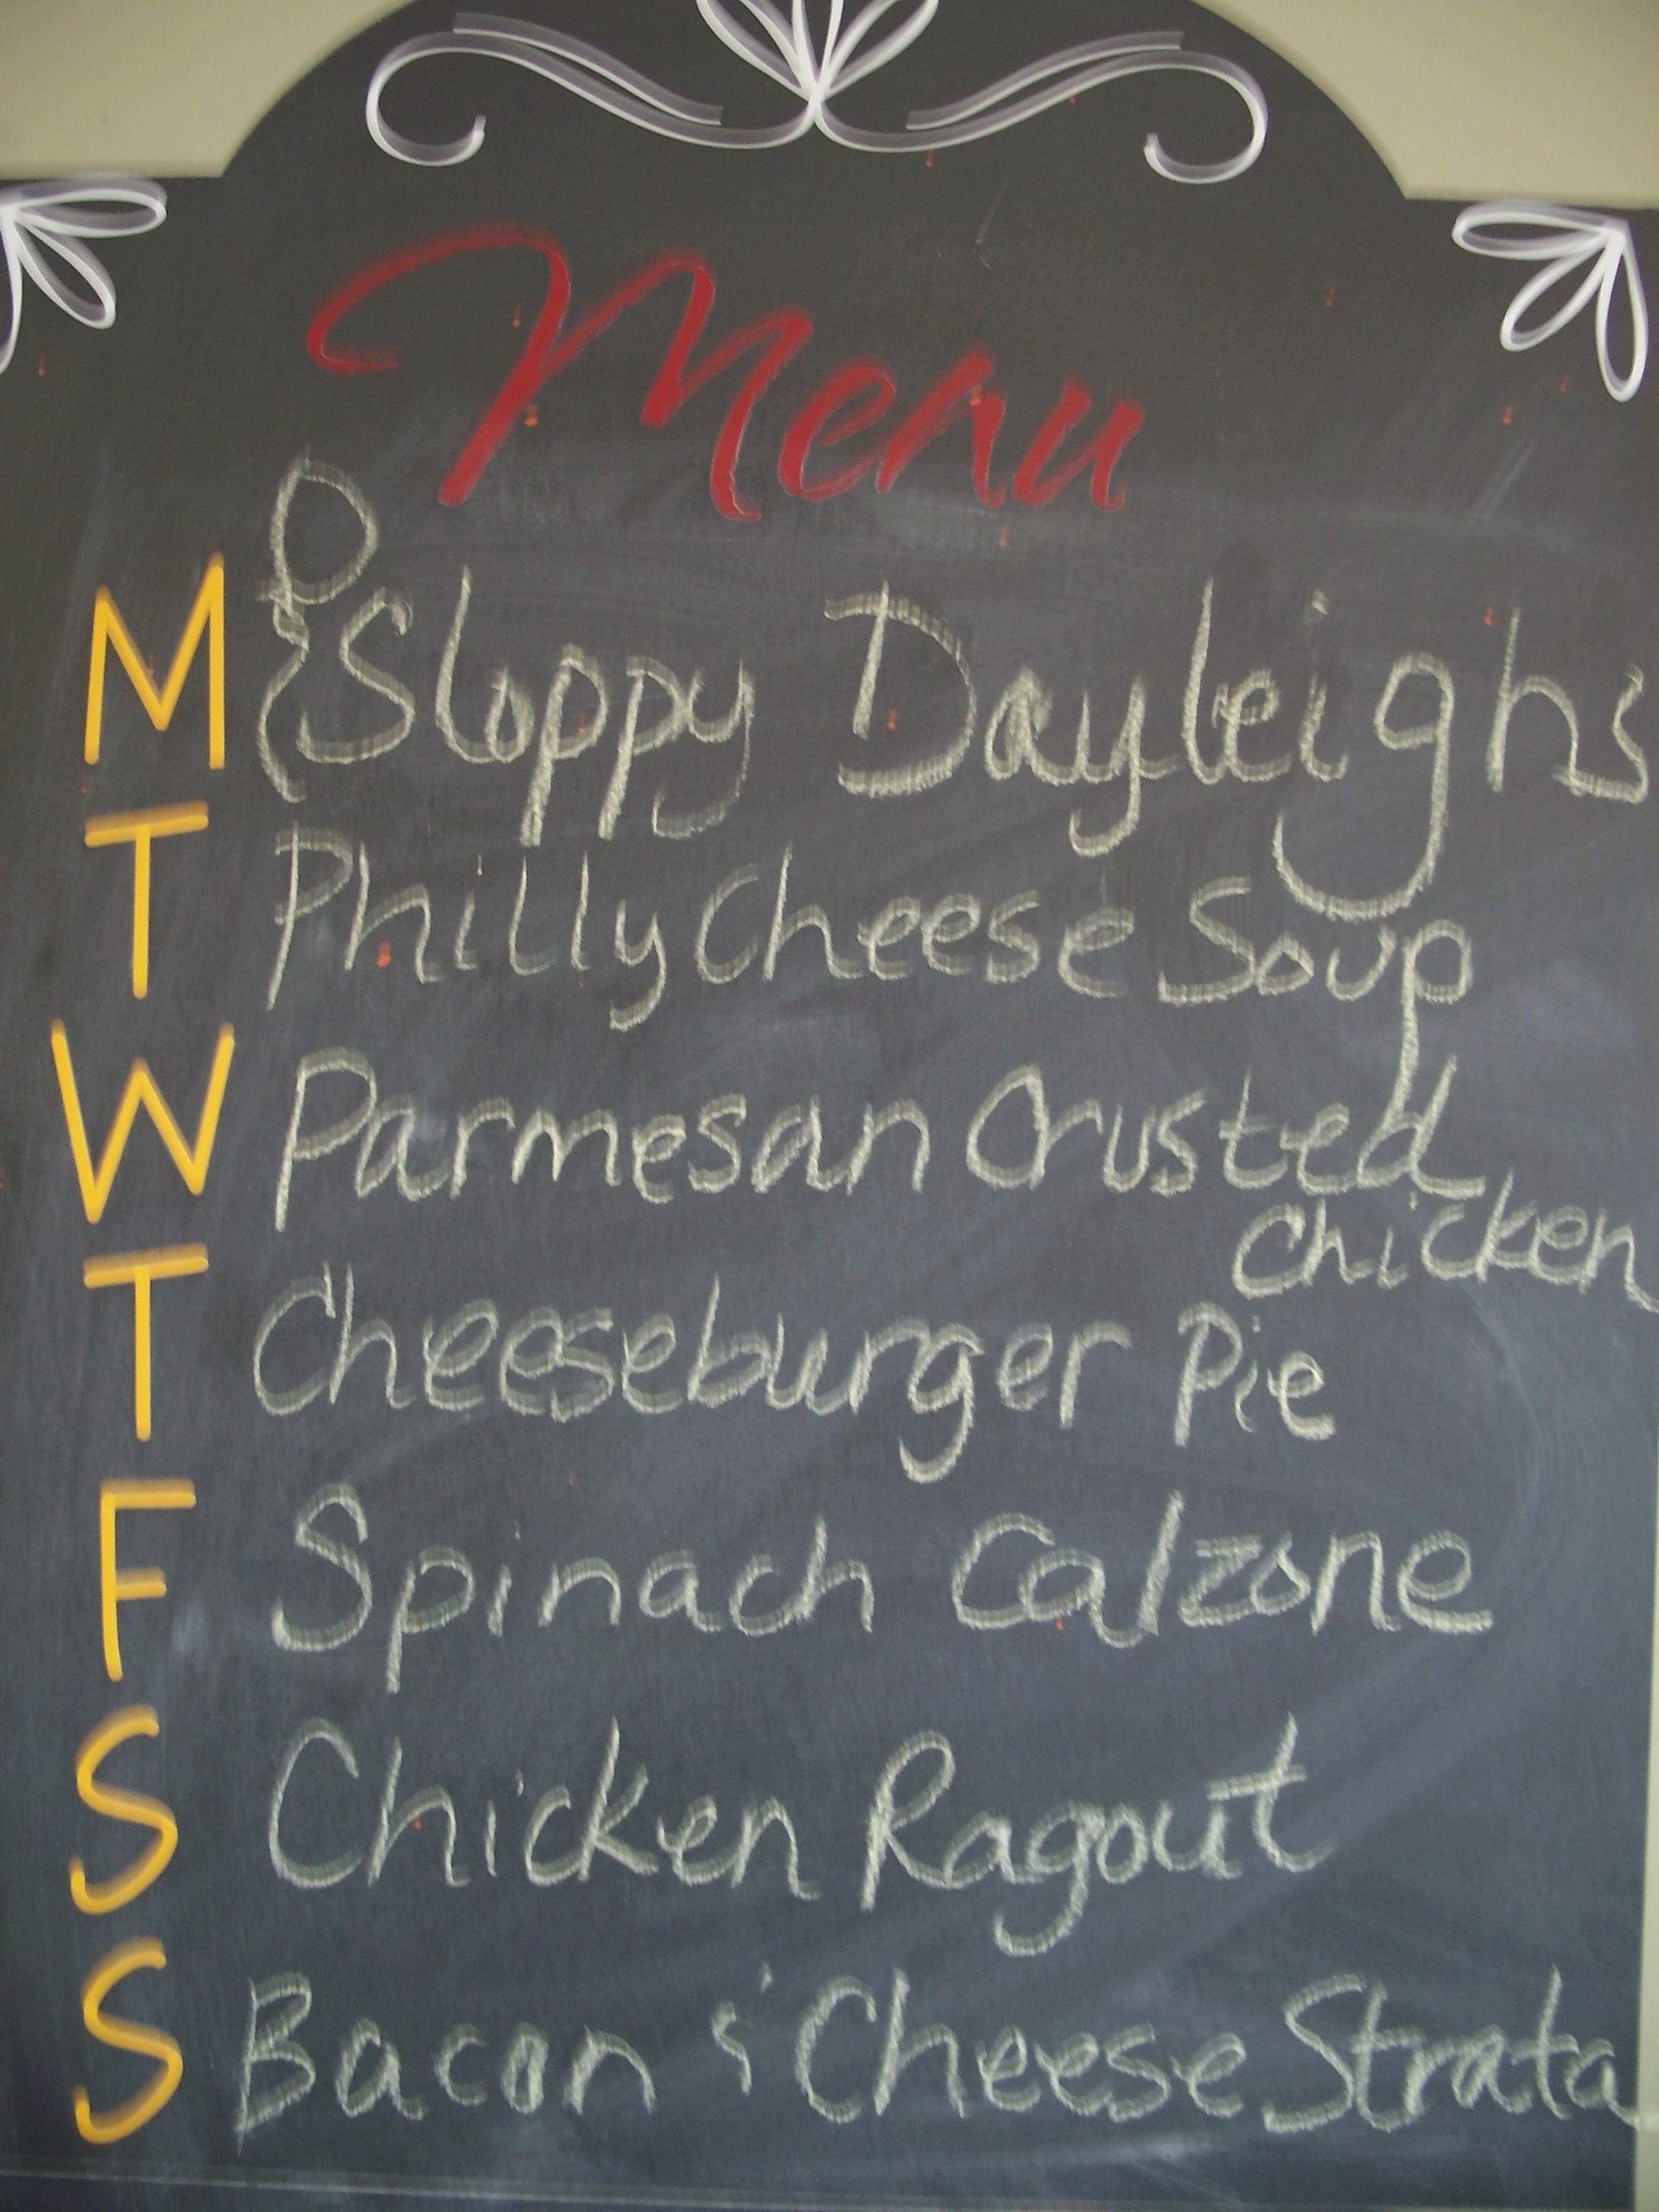 Menu
M Sloppy Dayleighs
T Philly Cheese Soup
W Parmesan Crusted
Chicken
T Cheeseburger Pie
F Spinach Calzone
S Chicken Ragout
S Bacon & Cheese Strata